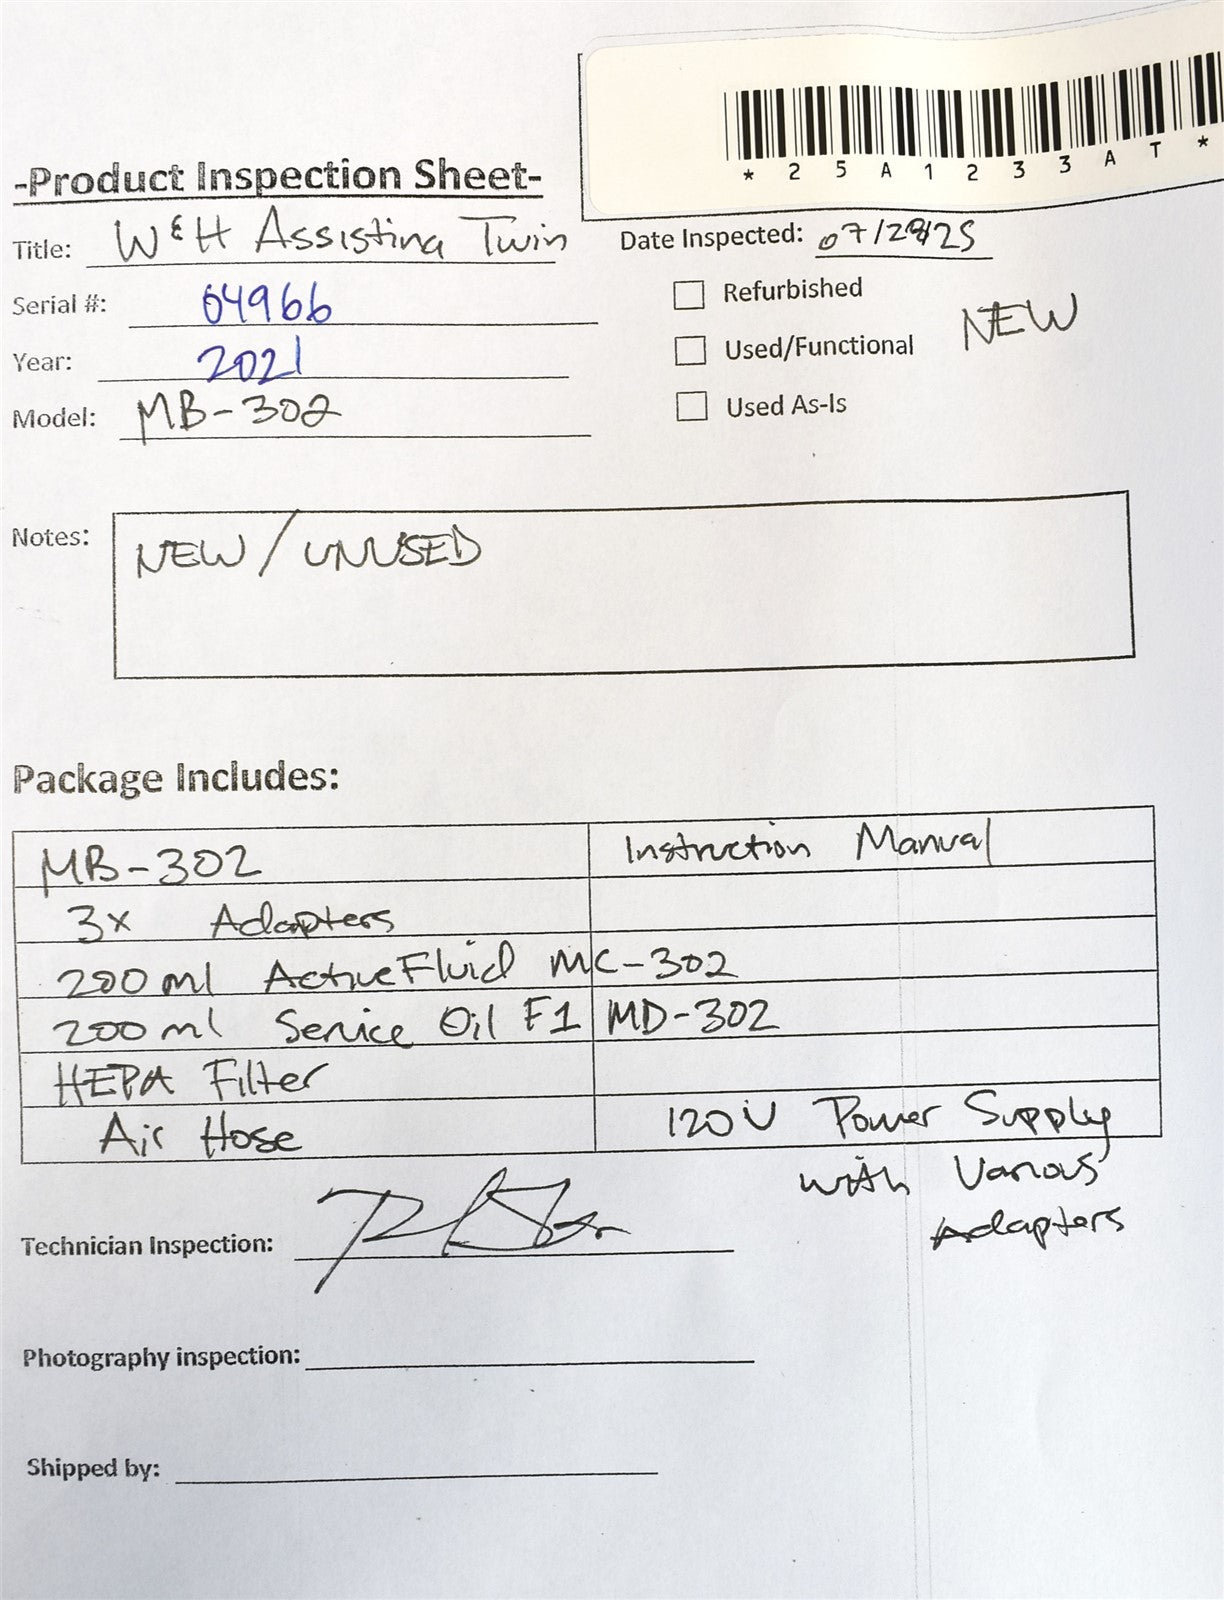 * 2 5 A 1 2 3 3 A T *
-Product Inspection Sheet-
Title: W&H Assistina Twin
Date Inspected: 07/29/25
Serial #: 04966
Refurbished
Year: 2021
Used/Functional
NEW
Model: MB-302
Used As-Is
Notes: NEW / UNUSED
Package Includes:
MB-302 Instruction Manual
3x Adapters
200ml Active Fluid MC-302
200ml Service Oil F1 MD-302
HEPA Filter
Air Hose 120V Power Supply
with Various
Adapters
Technician Inspection:
Photography inspection:
Shipped by: